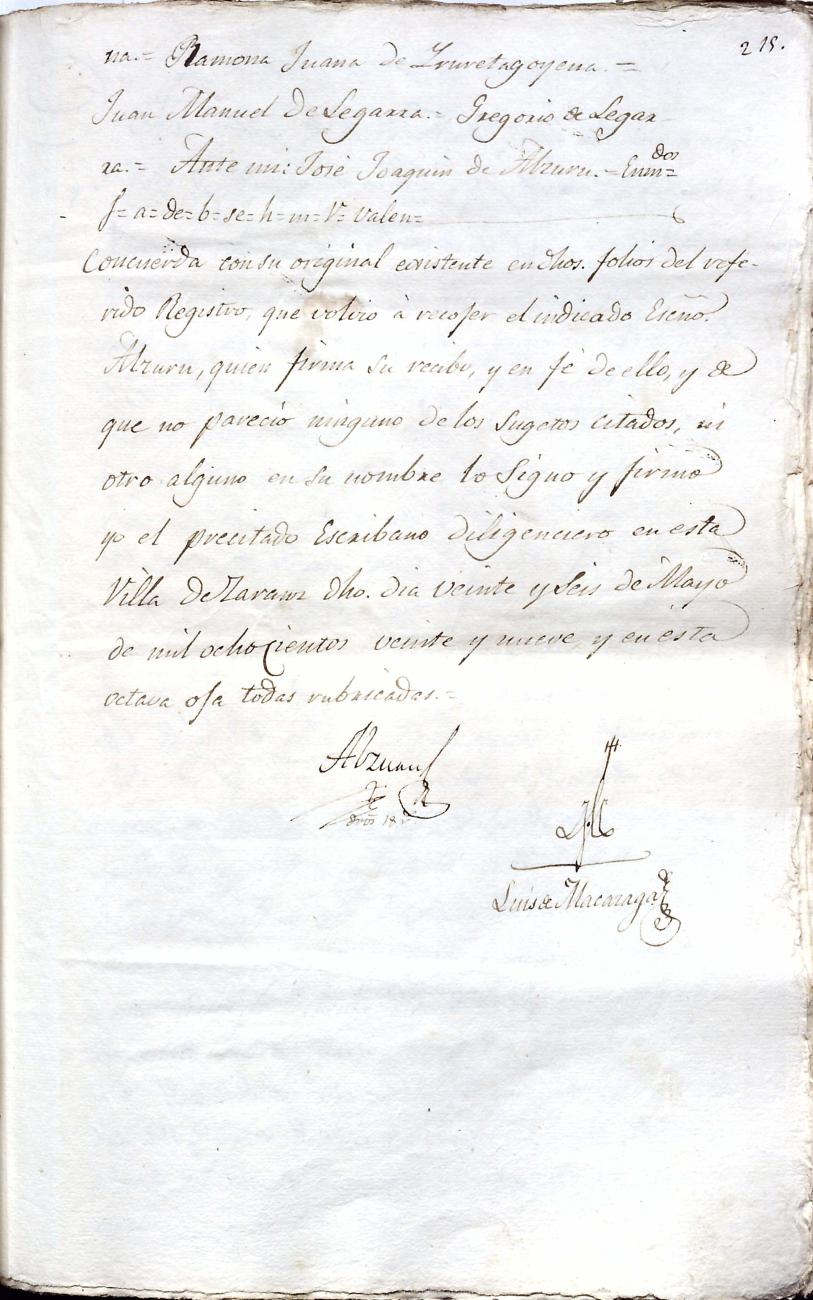 215.
na.= Ramona Juana de Yruretagoyena.=
Juan Manuel de Legarra.= Gregorio de Legar-
ra.= Ante mi: José Joaquin de Alzuru.= Enmdos=
f=a=de=b=se=h=m=V=valen=
Concuerda con su original existente en dhos. folios del refe-
rido Registro, que volvio à recojer el indicado Esnõ.
Alzuru, quien firma su recibo, y en fé de ello, y de
que no pareció ninguno de los sugetos citados, ni
otro alguno en su nombre lo signo y firmo
yo el precitado Escribano diligenciero en esta
Villa de Zarauz dho. dia veinte y seis de Mayo
de mil ochocientos veinte y nueve, y en ésta
octava oja todas rubricadas.=
Alzuru
Luis de Macazaga